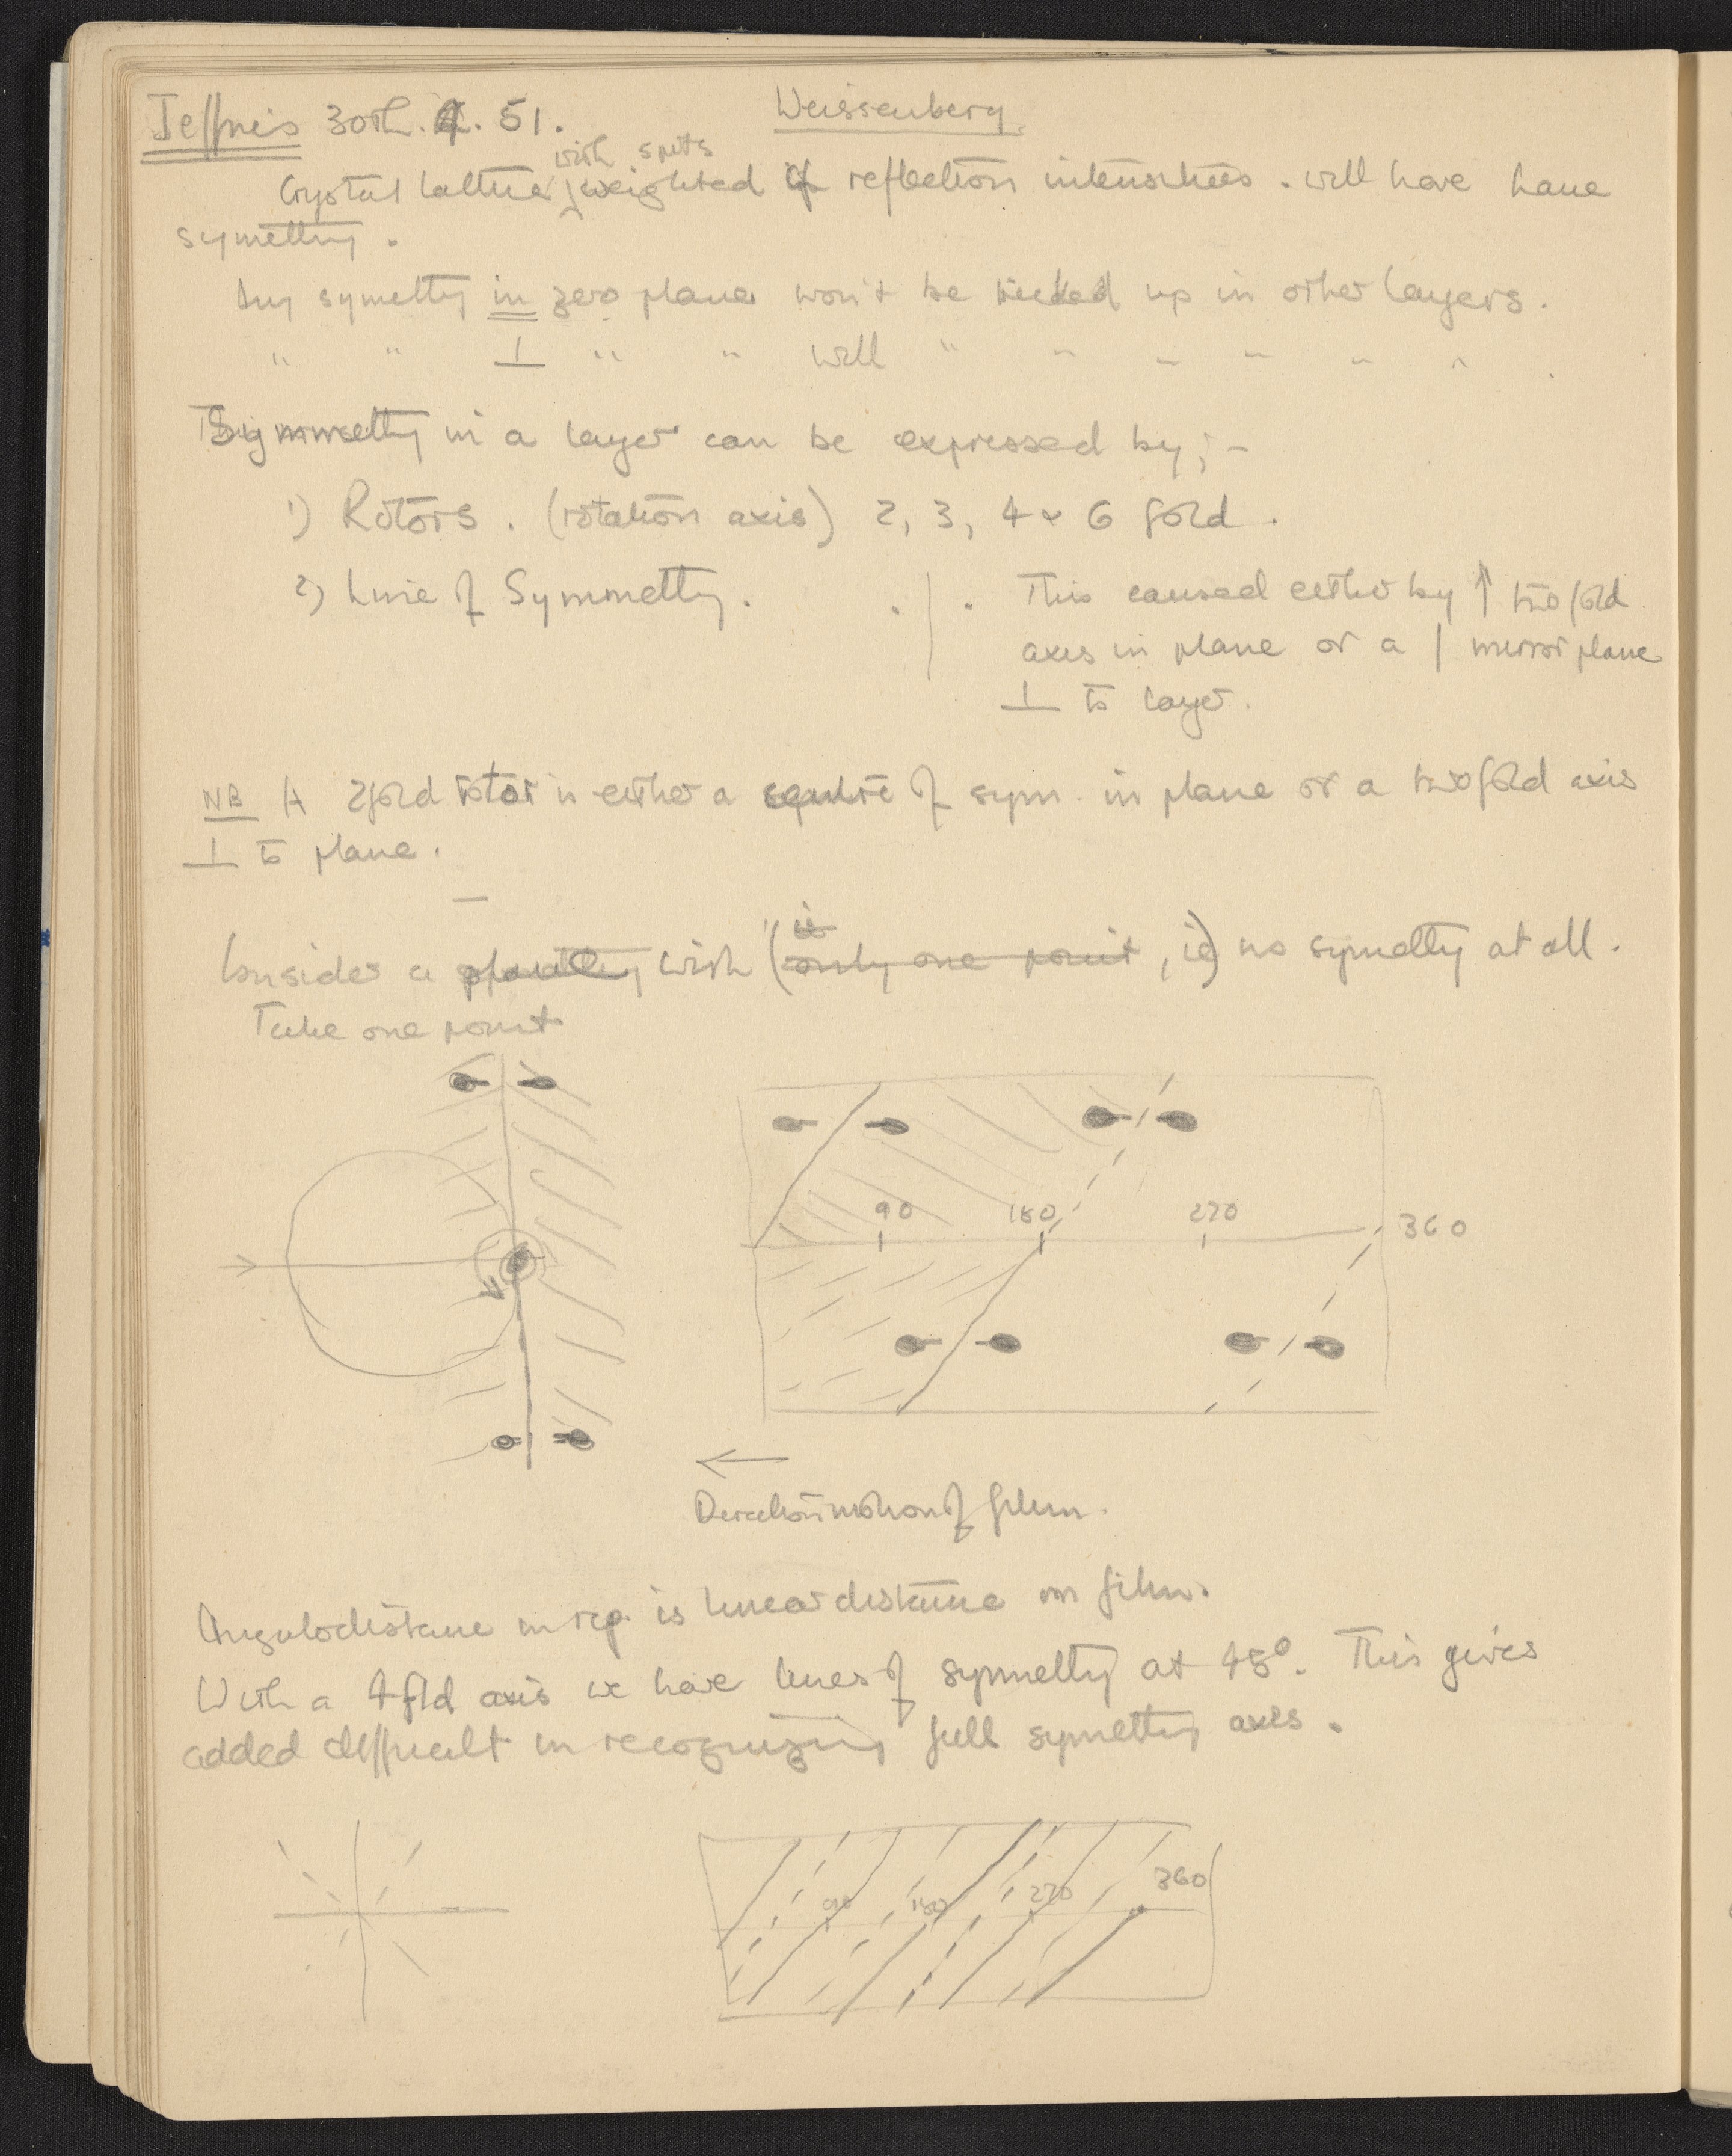 Jeffries 30th. 4. 51.
Weissenberg
with spots
Crystal lattice weighted of reflection intensities. will have have
symettry.
Any symettry in zero plane won't be picked up in other layers.
" " ⊥ " " will " " " " " "
Symmetry in a layer can be expressed by; -
1) Rotors. (rotation axis) 2, 3, 4 & 6 fold.
2) Line of Symmetry. . | . This caused either by ↑ two fold
axis in plane or a | mirror plane
⊥ to layer.
NB A 2fold rotor is either a centre of sym. in plane or a twofold axis
⊥ to plane.
Consider a with (only one point, ie) no symettry at all.
Take one point
90 180 270 360
←
Direction motion of film.
Angular distance in rep. is linear distance on film.
With a 4 fld axis we have lines of symettry at 45°. This gives
added difficult in recognizing full symettry axes.
90 180 270 360